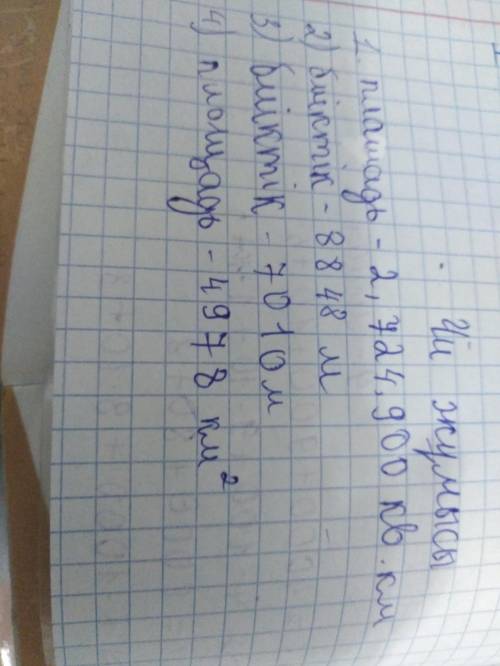 Үй жұмысы
1. площадь - 2,724,900 кв. км
2) биіктік - 8848 м
3) биіктік - 7010 м
4) площадь - 4978 км²